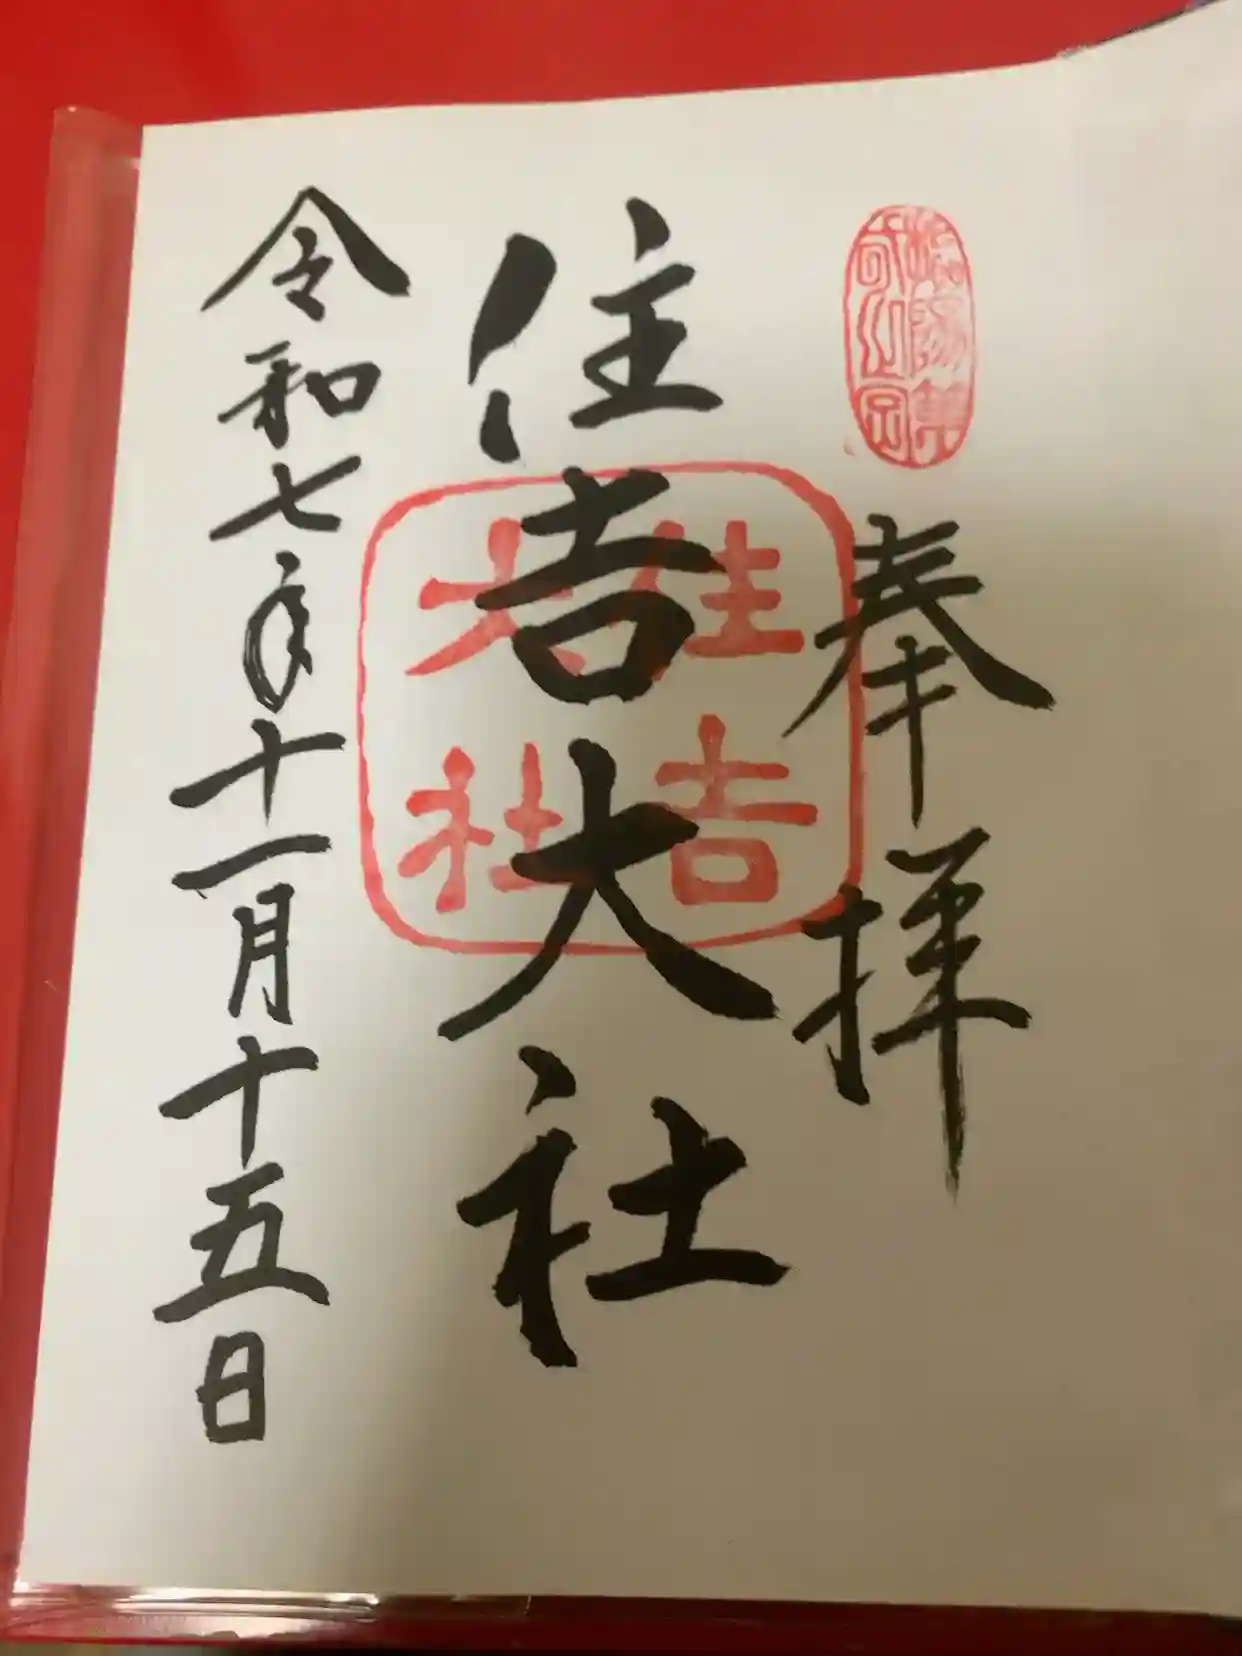 奉拝
住吉大社
令和七年十一月十五日
住吉
大社